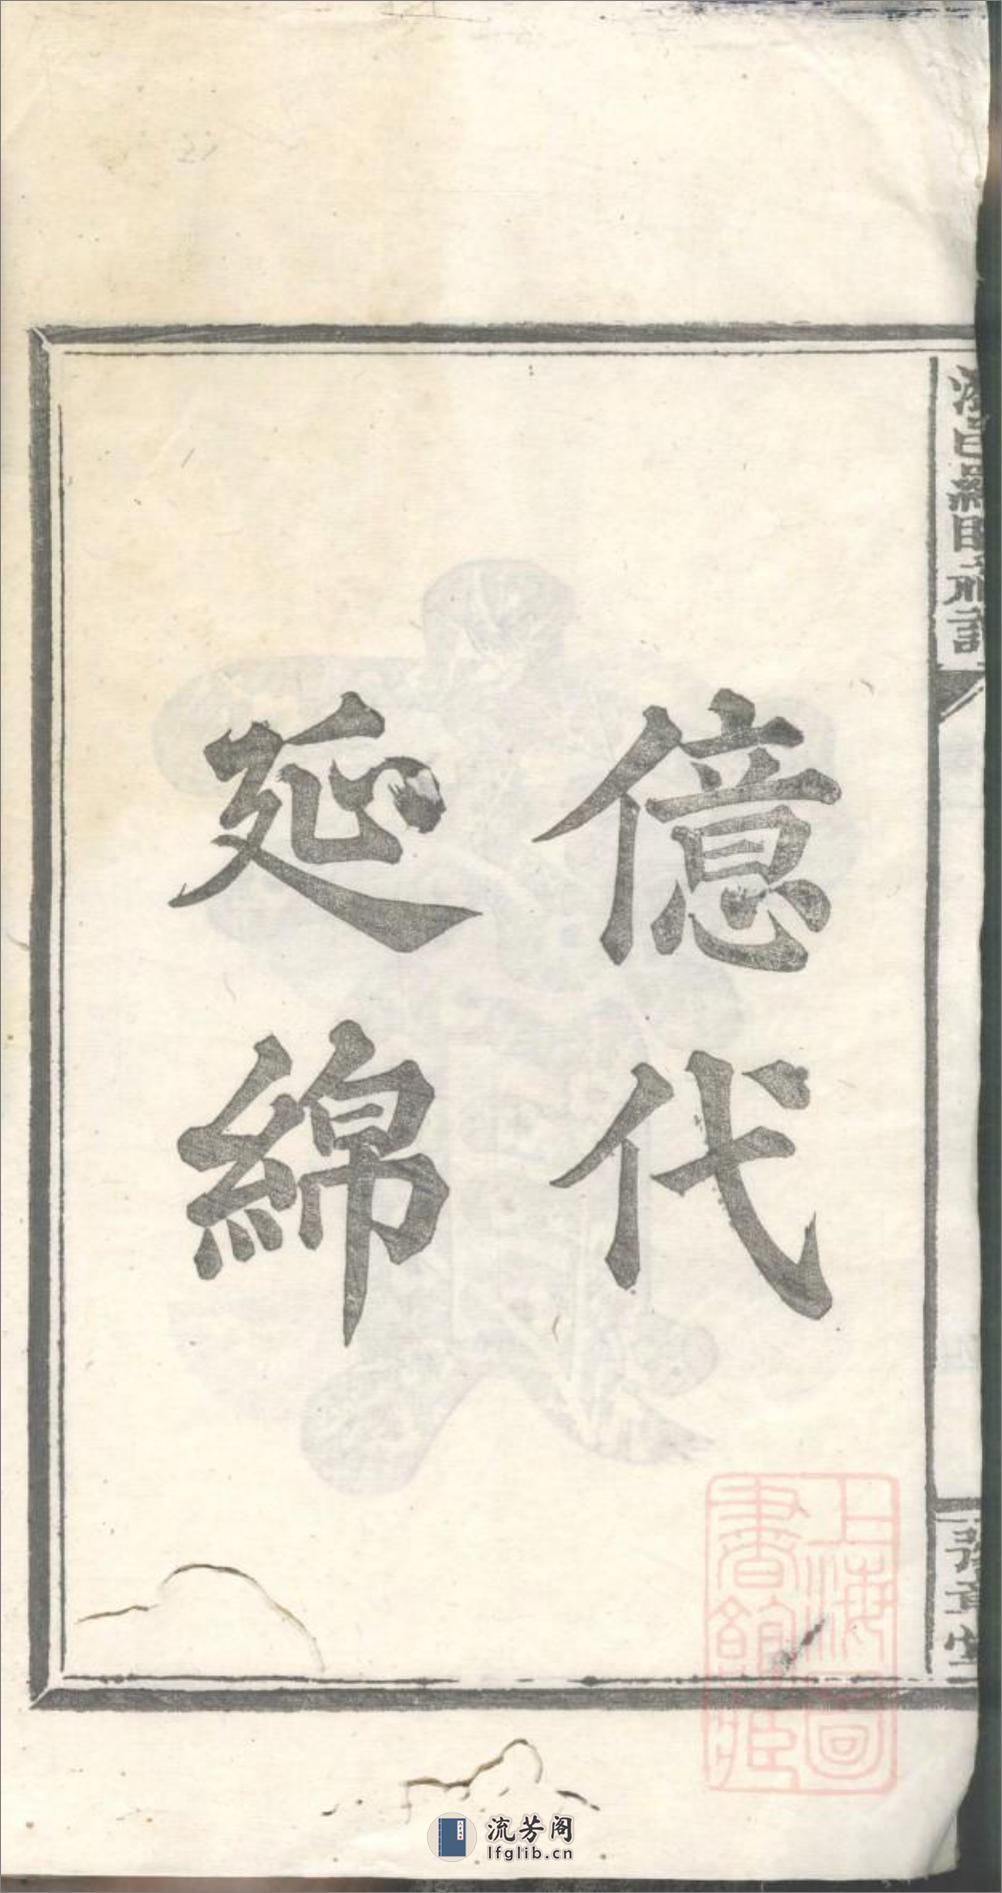 億代
延綿
上海圖
書館藏
流芳阁
lfglib.cn